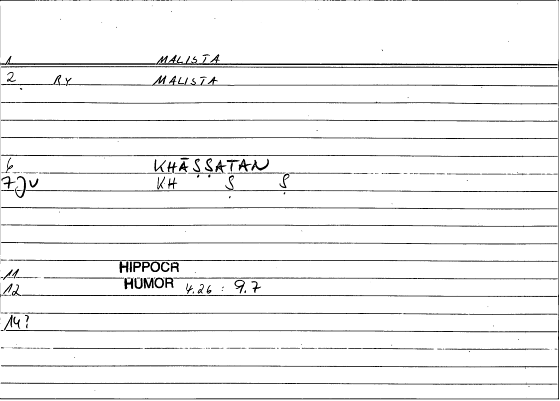 1 MALISTA
2 RY MALISTA
6 KHĀṢṢATAN
7 JV KH Ṣ Ṣ
11 HIPPOCR
12 HUMOR 4.26 : 9.7
14?